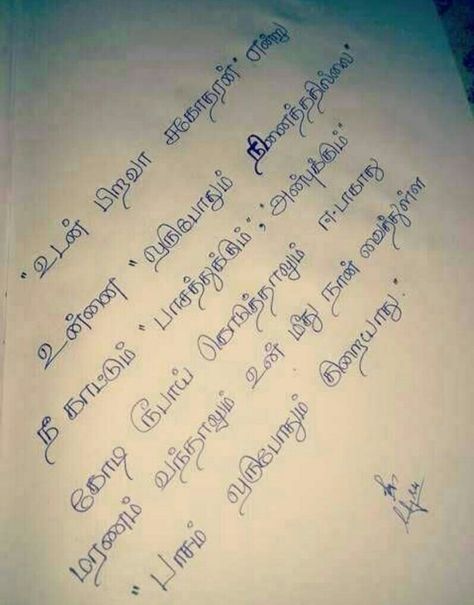 "உடன் பிறவா சகோதரன்" என்று
உன்னை "ஒருபோதும் நினைத்ததில்லை"
நீ காட்டும் "பாசத்துக்கும்", "அன்புக்கும்"
கோடி ரூபாய் கொடுத்தாலும் ஈடாகாது
மரணம் வந்தாலும் உன் மீது நான் வைத்துள்ள
"பாசம் ஒருபோதும் குறையாது."